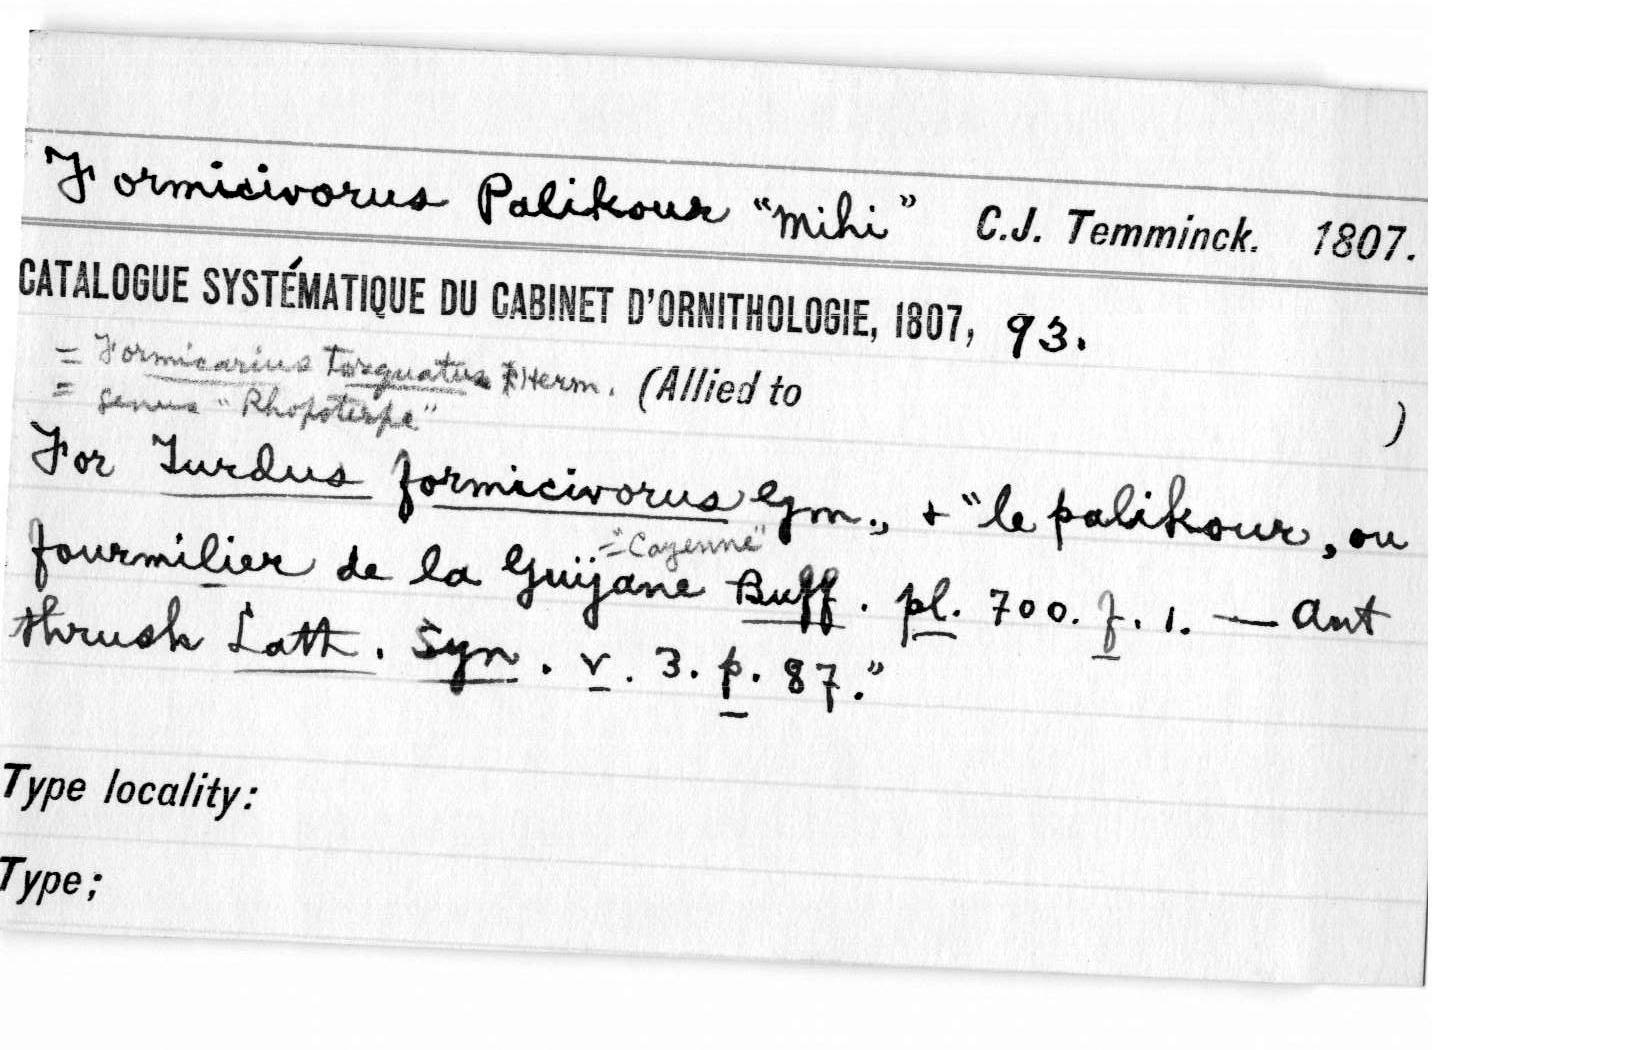 Formicivorus Palikour "Mihi" C.J. Temminck. 1807.
CATALOGUE SYSTÉMATIQUE DU CABINET D'ORNITHOLOGIE, 1807, 93.
= Formicarius Torquatus Herm. (Allied to )
= genus "Rhopoterpe"
For Turdus formicivorus Gm., + "le palikour, ou
="Cayenne"
fourmilier de la Guÿane Buff. pl. 700. f. 1. — Ant
thrush Lath. Syn. v. 3. p. 87."
Type locality:
Type;